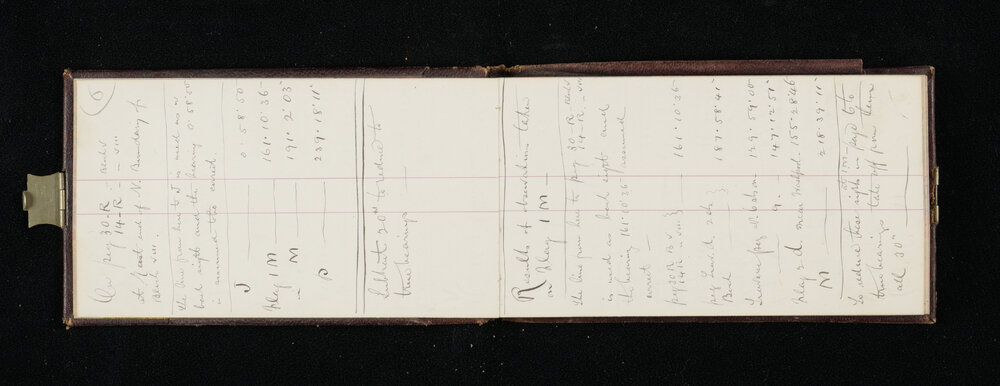 6
On peg 30-R
14-R - VIII
at East end of N. Boundary of
Block VIII.
The line from here to J is used as
back sight and the bearing 0.58.50
is assumed the correct.
J 0.58.50
flag 1 M 161.10.36
" M 191.2.03
P 239.18.11
Subtract 20" to reduce to
true bearings
Results of observations taken
on Flag 1 M
The line from here to peg 30-R
14-R - VIII
is used as back sight and
the bearing 161.10.36 assumed
correct
peg 30 R B V
14 R " VIII 161.10.36
peg 187.58.41
Traverse peg 129.59.00
" 9. 147.12.51
flag r.d. near 155.28.46
M 218.39.11
To reduce these sights to
true bearings take off from them
all 30"